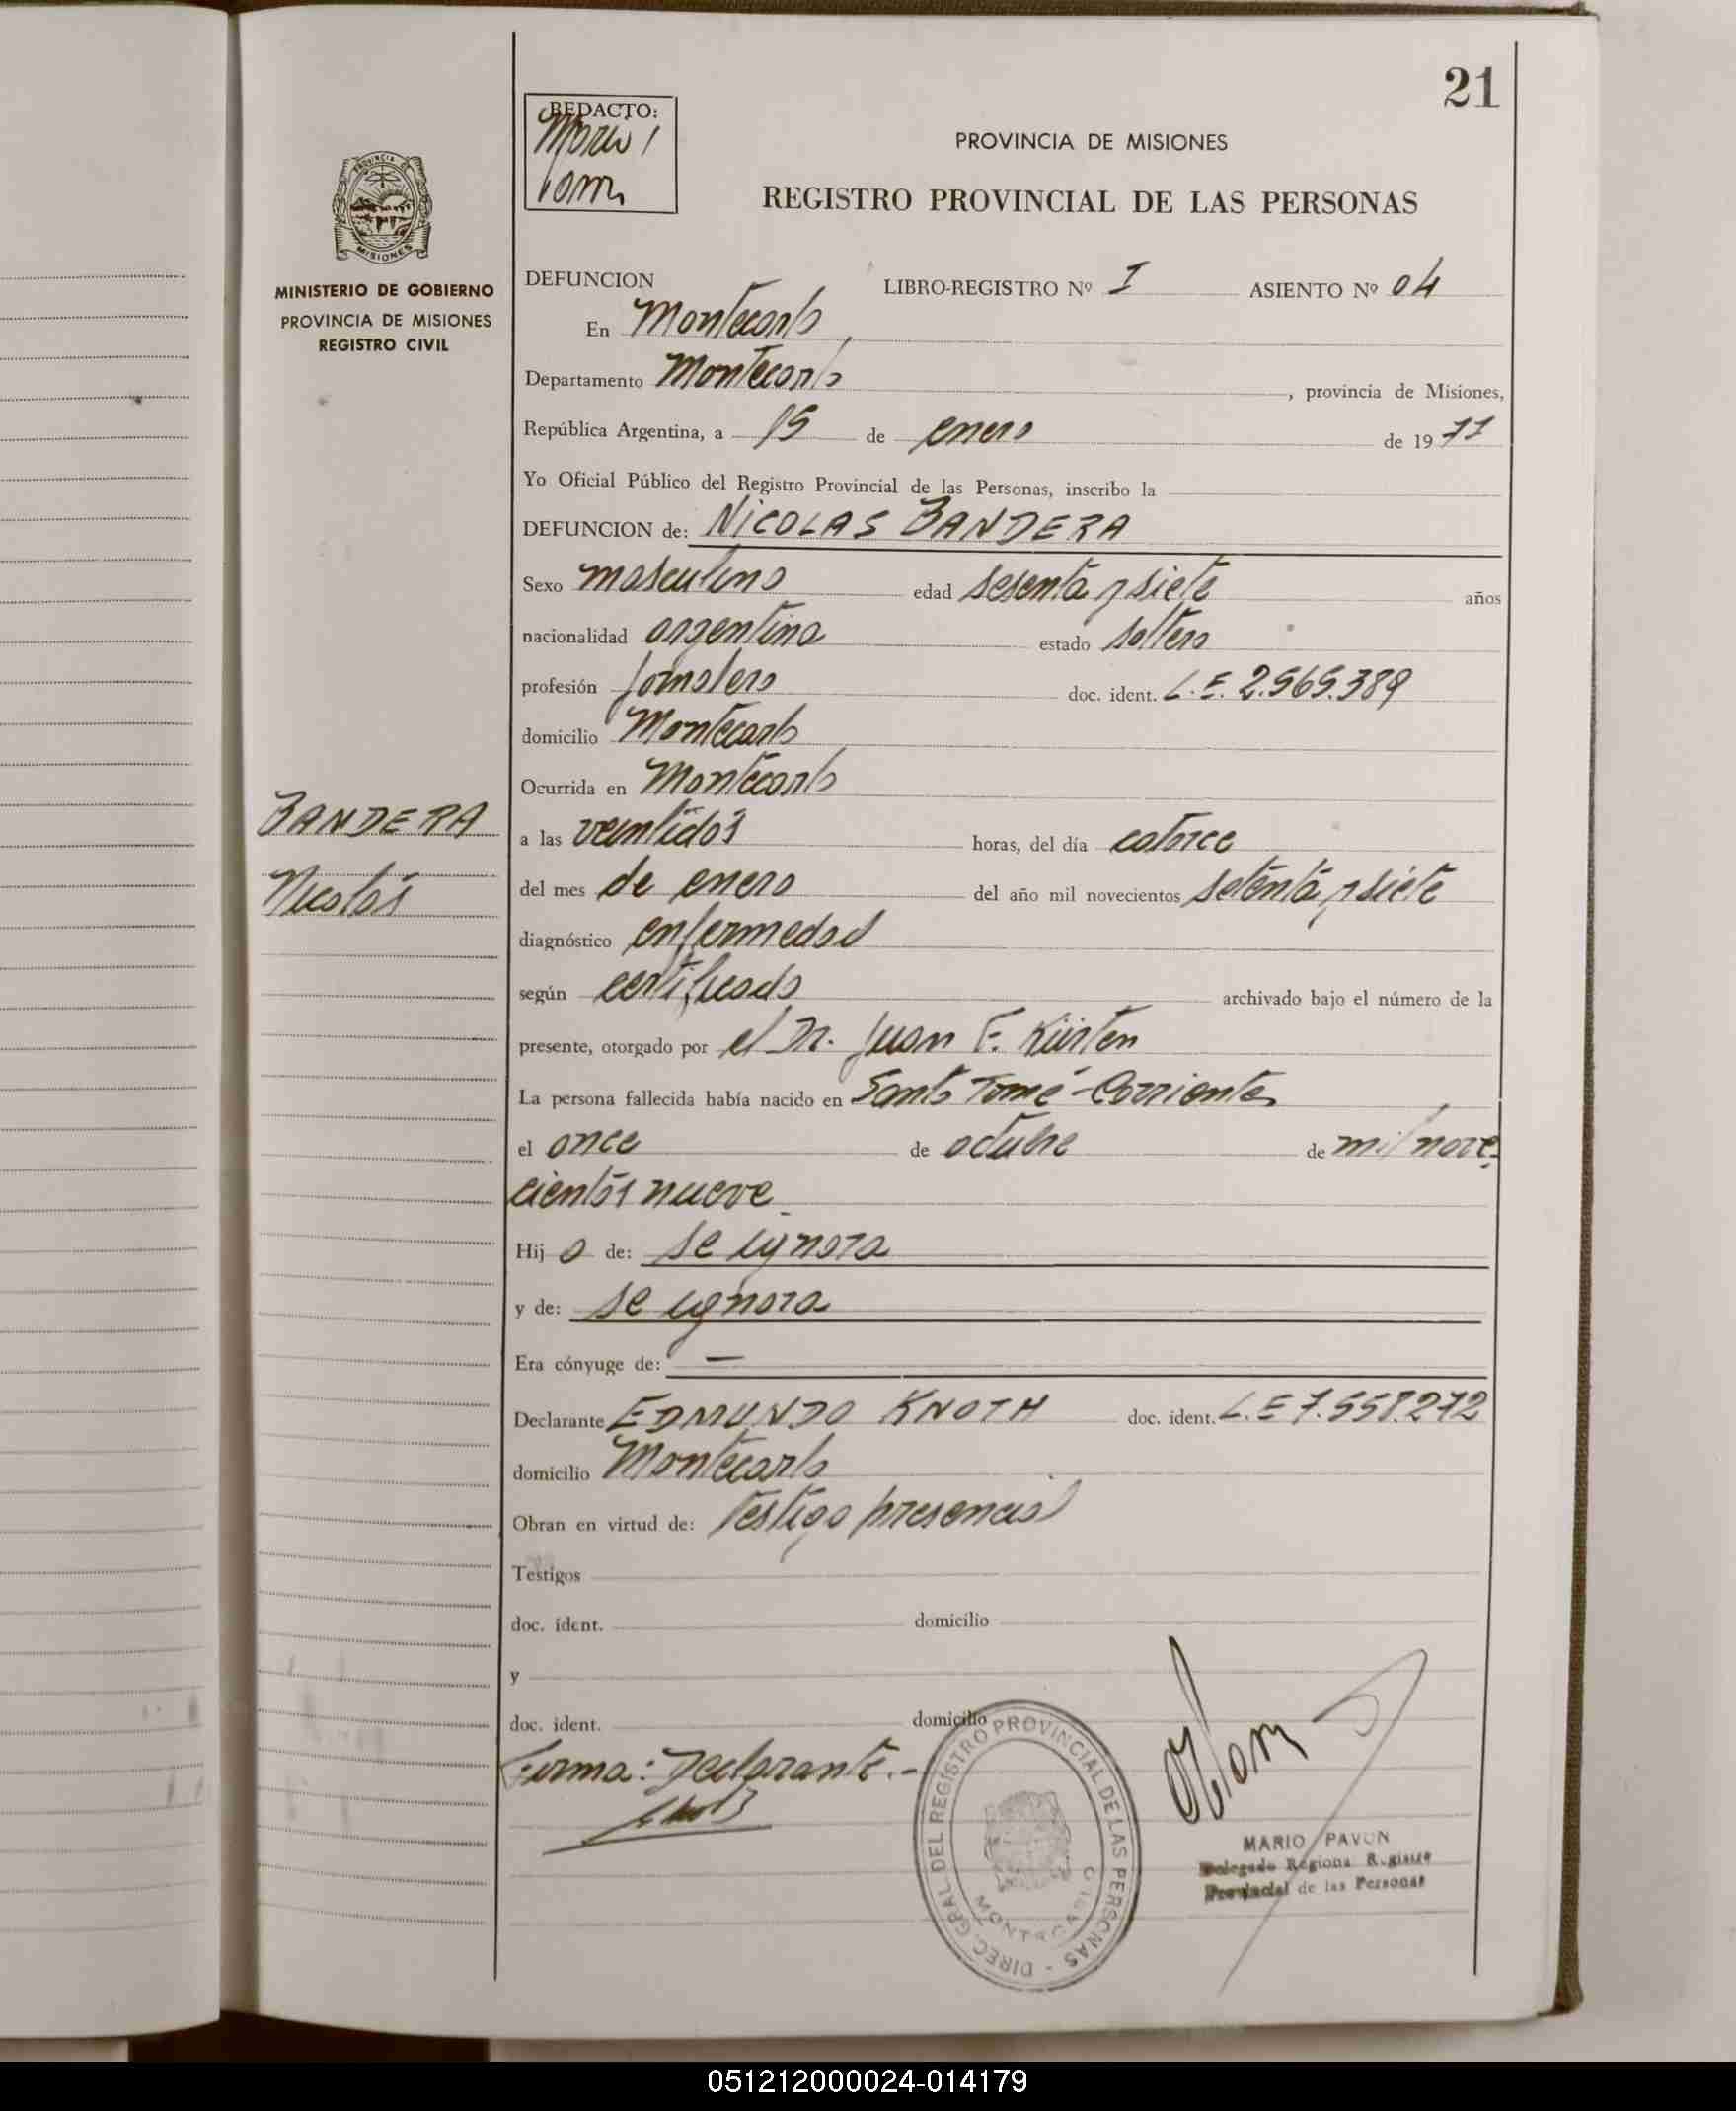 21
REDACTO:
PROVINCIA DE MISIONES
REGISTRO PROVINCIAL DE LAS PERSONAS
PROVINCIA DE MISIONES
MINISTERIO DE GOBIERNO
PROVINCIA DE MISIONES
REGISTRO CIVIL
DEFUNCION LIBRO-REGISTRO Nº I ASIENTO Nº 04
En Montecarlo,
Departamento Montecarlo, provincia de Misiones,
República Argentina, a 15 de enero de 1977
Yo Oficial Público del Registro Provincial de las Personas, inscribo la
DEFUNCION de: NICOLAS BANDERA
Sexo masculino edad sesenta y siete años
nacionalidad argentina estado soltero
profesión Jornalero doc. ident. L.E. 2.565.389
domicilio Montecarlo
Ocurrida en Montecarlo
BANDERA
a las veintidós horas, del día catorce
Nicolás
del mes de enero del año mil novecientos setenta y siete
diagnóstico enfermedad
según certificado archivado bajo el número de la
presente, otorgado por el Dr. Juan F. Kürten
La persona fallecida había nacido en Santo Tomé-Corrientes
el once de octubre de mil nove-
cientos nueve.
Hij o de: se ignora
y de: se ignora
Era cónyuge de: —
Declarante EDMUNDO KNOTH doc. ident. L.E 7.558.272
domicilio Montecarlo
Obran en virtud de: Testigo presencial
Testigos
doc. ident. domicilio
y
doc. ident. domicilio
Firma: Declarante.-
DIREC. GRAL DEL REGISTRO PROVINCIAL DE LAS PERSONAS -
MONTECARLO
MARIO PAVON
Delegado Regional Registro
Provincial de las Personas
051212000024-014179